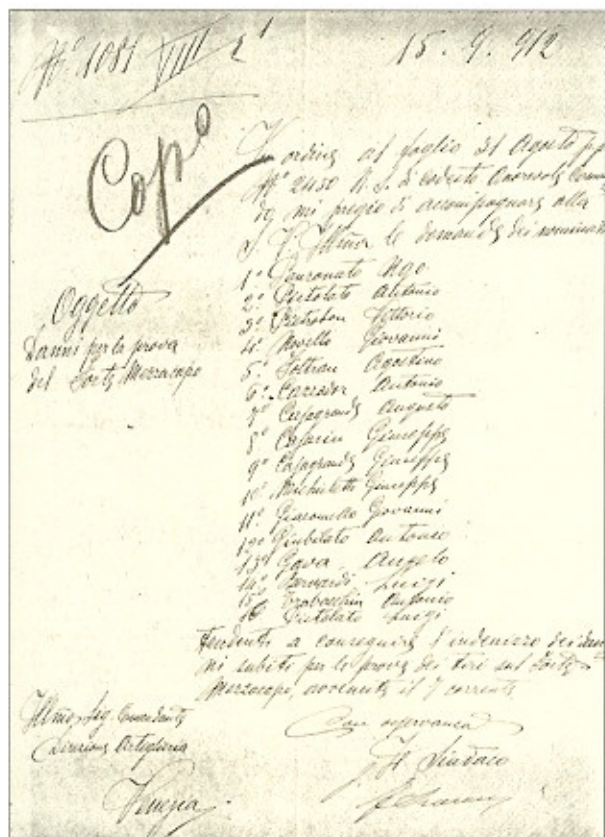 N° 1081 VIII 2
15. 9. 912
Copo
In ordine al foglio 31 Agosto p.p.
N° 2450 R. S. di codesto Onorevole Coman
do, mi pregio di accompagnare alla
S. V. Ill̃ma le domande dei nominati
1° Ugo
2° Pistolato Antonio
3° Pietrobon Vittorio
4° Novello Giovanni
5° Foltran Agostino
6° Carrador Antonio
7° Casagrande Augusto
8° Casarin Giuseppe
9° Casagrande Giuseppe
10° Michieletti Giuseppe
11° Giacomello Giovanni
12° Giubilato Antonio
13° Gava Angelo
14° Luigi
15° Antonio
16 Pistolato Luigi
tendenti a conseguire l'indenizzo dei dan
ni subiti per le prove dei tiri sul Forte
Mezzacapo, avvenute il 7 corrente.
Oggetto
Danni per la prova
del Forte Mezzacapo
Con osservanza
Il Sindaco
Ill̃mo Sig. Comandante
Direzione Artiglieria
Venezia